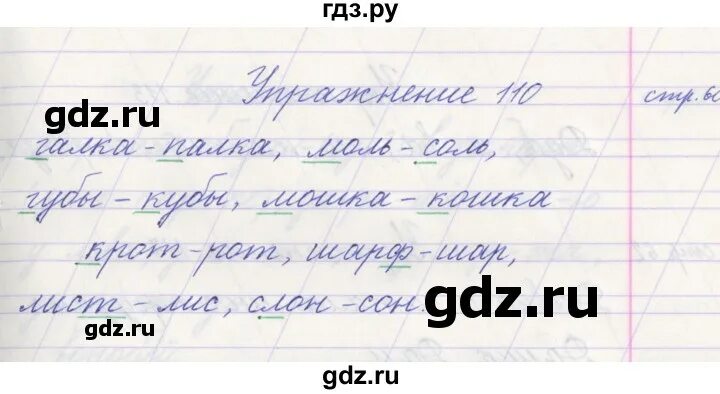 гдз.ру
Упражнение 110
стр. 60
gdz.ru
gdz.ru
галка - палка, моль - соль,
губы - кубы, мошка - кошка
крот - рот, шарф - шар,
лист - лис, слон - сон.
gdz.ru
gdz.ru
gdz.ru